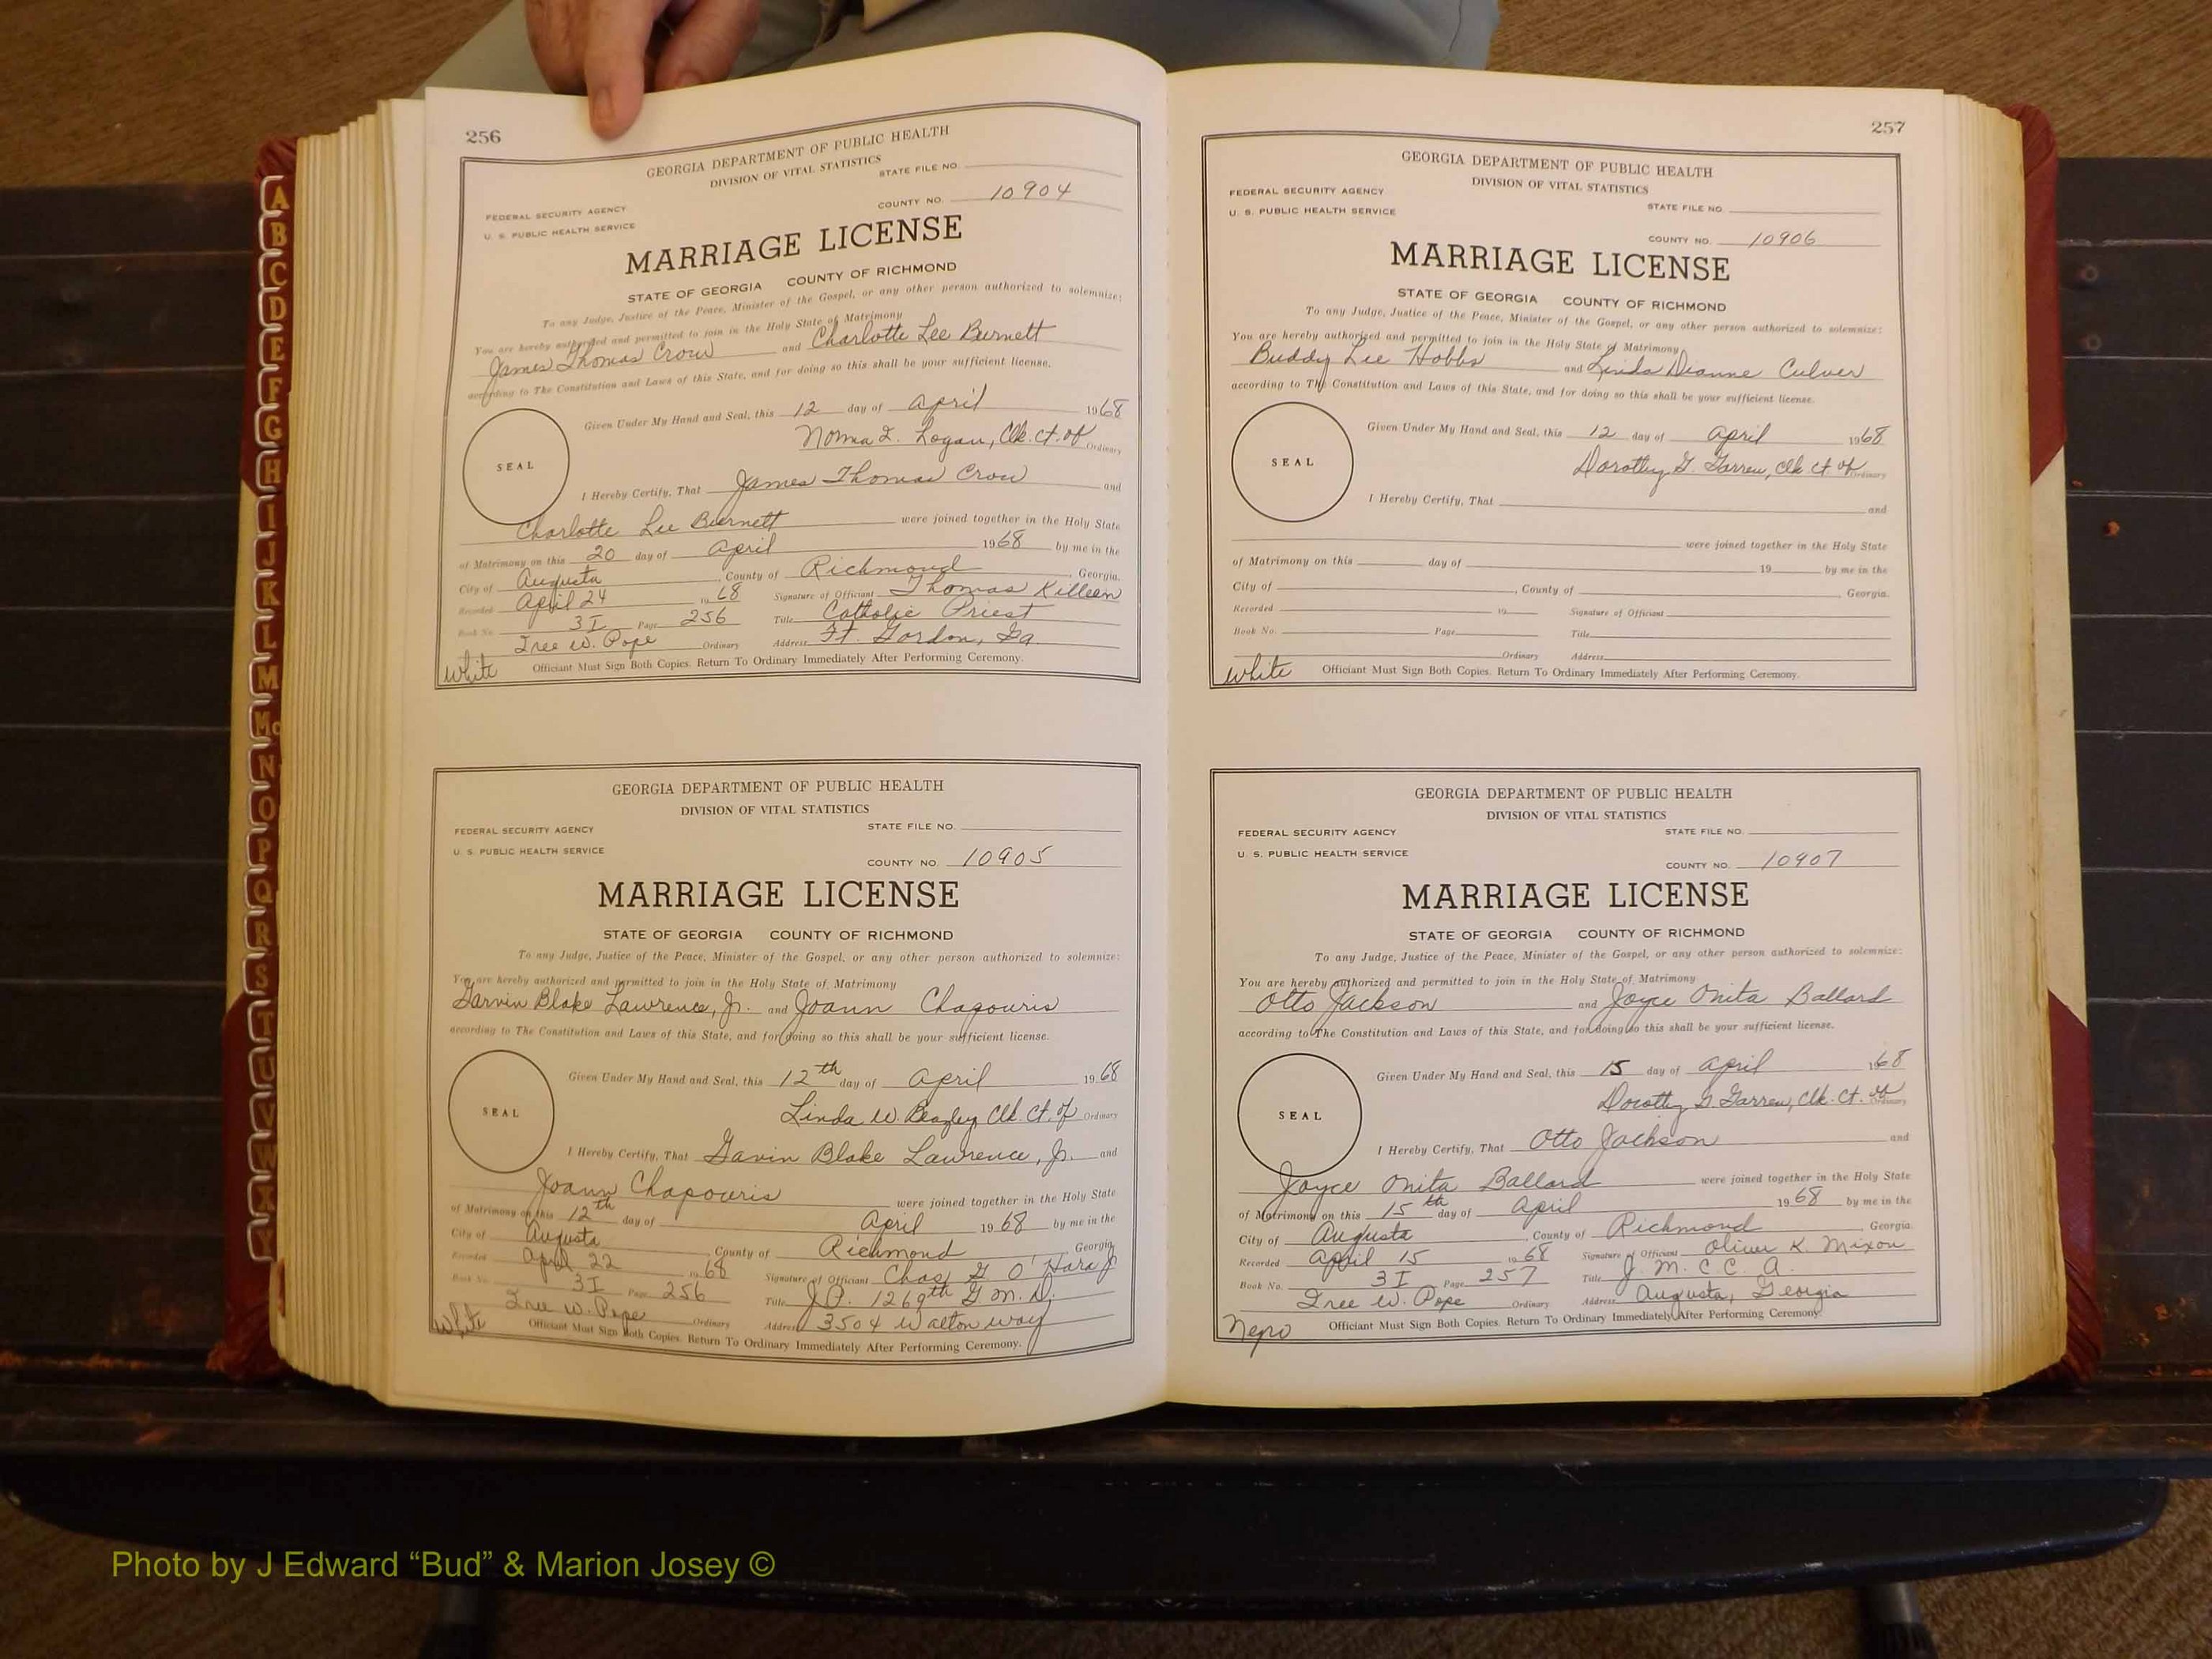 256
GEORGIA DEPARTMENT OF PUBLIC HEALTH
DIVISION OF VITAL STATISTICS
STATE FILE NO.
FEDERAL SECURITY AGENCY
U. S. PUBLIC HEALTH SERVICE
COUNTY NO. 10904
MARRIAGE LICENSE
STATE OF GEORGIA COUNTY OF RICHMOND
To any Judge, Justice of the Peace, Minister of the Gospel, or any other person authorized to solemnize:
You are hereby authorized and permitted to join in the Holy State of Matrimony
James Thomas Crow and Charlotte Lee Burnett
according to The Constitution and Laws of this State, and for doing so this shall be your sufficient license.
Given Under My Hand and Seal, this 12 day of April 1968
Norma L. Logan, Clk. Ct. of Ordinary
SEAL
I Hereby Certify, That James Thomas Crow and
Charlotte Lee Burnett were joined together in the Holy State
of Matrimony on this 20 day of April 1968 by me in the
City of Augusta, County of Richmond, Georgia.
Recorded April 24 1968 Signature of Officiant Thomas Killeen
Book No. 3I Page 256 Title Catholic Priest
Iree W. Pope Ordinary Address Ft. Gordon, Ga.
White Officiant Must Sign Both Copies. Return To Ordinary Immediately After Performing Ceremony.
GEORGIA DEPARTMENT OF PUBLIC HEALTH
DIVISION OF VITAL STATISTICS
FEDERAL SECURITY AGENCY STATE FILE NO.
U. S. PUBLIC HEALTH SERVICE
COUNTY NO. 10905
MARRIAGE LICENSE
STATE OF GEORGIA COUNTY OF RICHMOND
To any Judge, Justice of the Peace, Minister of the Gospel, or any other person authorized to solemnize:
You are hereby authorized and permitted to join in the Holy State of Matrimony
Garvin Blake Lawrence, Jr. and Joann Chapouris
according to The Constitution and Laws of this State, and for doing so this shall be your sufficient license.
Given Under My Hand and Seal, this 12th day of April 1968
Linda W. Beazley, Clk. Ct. of Ordinary
SEAL
I Hereby Certify, That Gavin Blake Lawrence, Jr. and
Joann Chapouris were joined together in the Holy State
of Matrimony on this 12th day of April 1968 by me in the
City of Augusta, County of Richmond, Georgia
Recorded April 22 1968 Signature of Officiant Chas. G. O'Hara Jr
Book No. 3I Page 256 Title J.P. 1269th G. M. D.
Iree W. Pope Ordinary Address 3504 Walton Way
White Officiant Must Sign Both Copies. Return To Ordinary Immediately After Performing Ceremony.
257
GEORGIA DEPARTMENT OF PUBLIC HEALTH
DIVISION OF VITAL STATISTICS
FEDERAL SECURITY AGENCY
U. S. PUBLIC HEALTH SERVICE
STATE FILE NO.
COUNTY NO. 10906
MARRIAGE LICENSE
STATE OF GEORGIA COUNTY OF RICHMOND
To any Judge, Justice of the Peace, Minister of the Gospel, or any other person authorized to solemnize:
You are hereby authorized and permitted to join in the Holy State of Matrimony
Buddy Lee Hobbs and Linda Dianne Culver
according to The Constitution and Laws of this State, and for doing so this shall be your sufficient license.
Given Under My Hand and Seal, this 12 day of April 1968
Dorothy G. Garren, Clk Ct of Ordinary
SEAL
I Hereby Certify, That and
were joined together in the Holy State
of Matrimony on this day of 19 by me in the
City of , County of , Georgia.
Recorded 19 Signature of Officiant
Book No. Page Title
Ordinary Address
White Officiant Must Sign Both Copies. Return To Ordinary Immediately After Performing Ceremony.
GEORGIA DEPARTMENT OF PUBLIC HEALTH
DIVISION OF VITAL STATISTICS
FEDERAL SECURITY AGENCY STATE FILE NO.
U. S. PUBLIC HEALTH SERVICE
COUNTY NO. 10907
MARRIAGE LICENSE
STATE OF GEORGIA COUNTY OF RICHMOND
To any Judge, Justice of the Peace, Minister of the Gospel, or any other person authorized to solemnize:
You are hereby authorized and permitted to join in the Holy State of Matrimony
Otto Jackson and Joyce Onita Ballard
according to The Constitution and Laws of this State, and for doing so this shall be your sufficient license.
Given Under My Hand and Seal, this 15 day of April 1968
Dorothy G. Garren, Clk. Ct. of Ordinary
SEAL
I Hereby Certify, That Otto Jackson and
Joyce Onita Ballard were joined together in the Holy State
of Matrimony on this 15th day of April 1968 by me in the
City of Augusta, County of Richmond, Georgia
Recorded April 15 1968 Signature of Officiant Oliver K. Mixon
Book No. 3I Page 257 Title J. M. C C. A.
Iree W. Pope Ordinary Address Augusta, Georgia
Negro Officiant Must Sign Both Copies. Return To Ordinary Immediately After Performing Ceremony.
A
B
C
D
E
F
G
H
I
J
K
L
M
Mc
N
O
P
Q
R
S
T
U
V
W
X
Y
Photo by J Edward “Bud” & Marion Josey ©